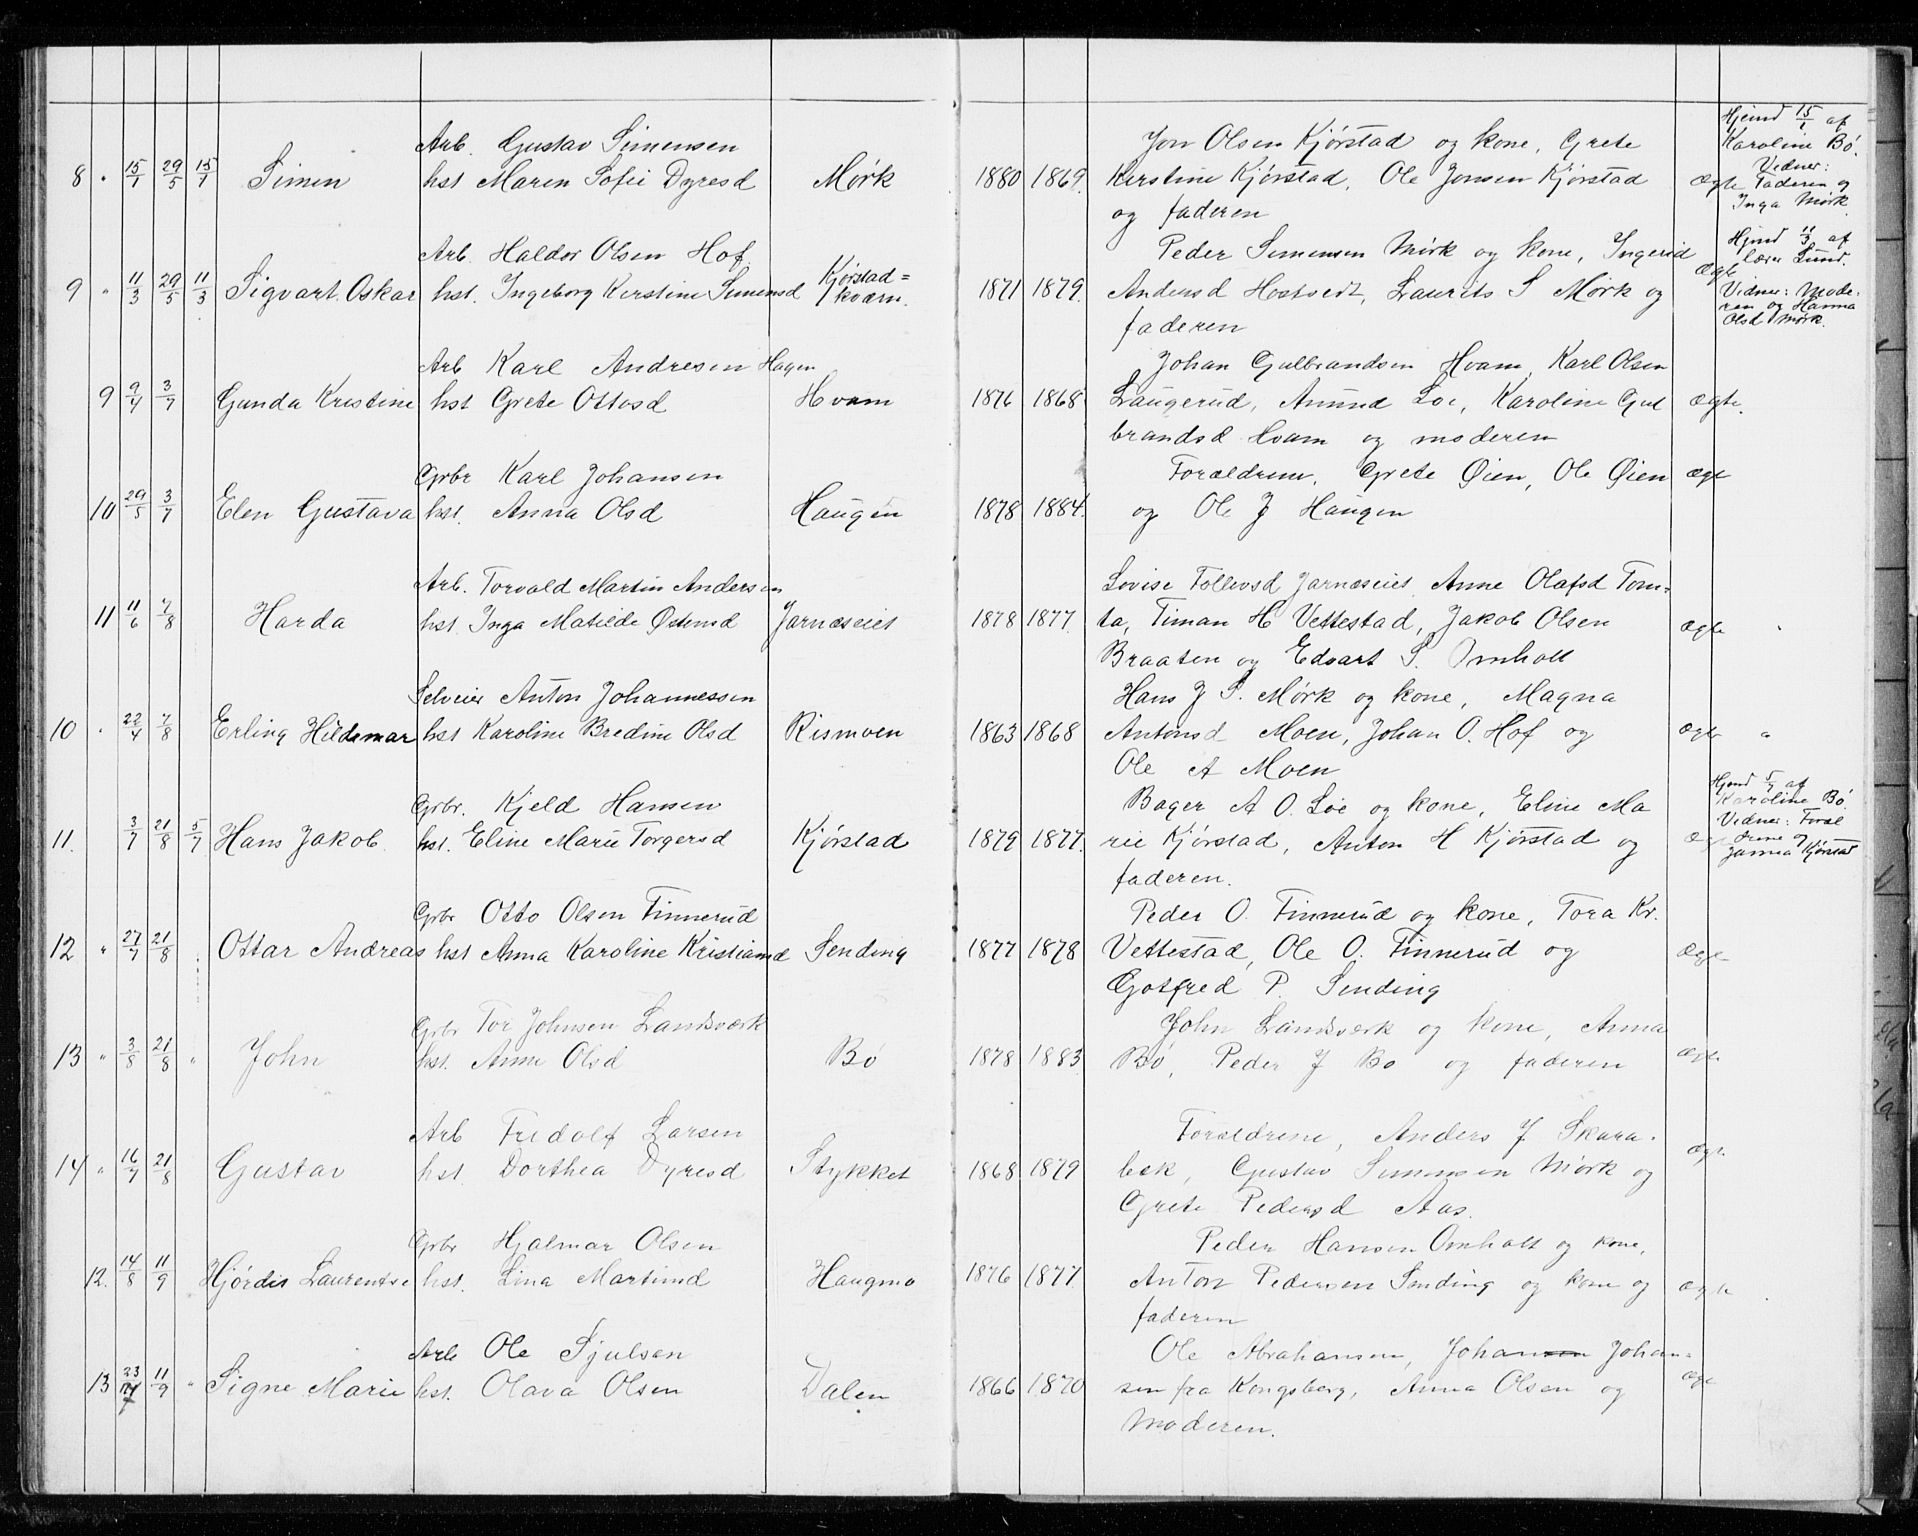 Arb. Gustav Simensen
8 " 15/1 29/5 15/1 Simen hst Maren Sofie Dyresd Mørk
Arb. Haldor Olsen Hof.
9 " 11/3 29/5 11/3 Sigvart Oskar hst. Ingeborg Kirstine Simensd Kjørstad=
kværn.
Arb Karl Andresen Hagen
9 9/4 3/7 Gunda Kristine hst Grete Ottosd Hvam
Grbr Karl Johansen
10 29/5 3/7 Elen Gustava hst. Anna Olsd Haugen
Arb. Torvald Martin Andersen
11 11/6 7/8 Harda hst. Inga Matilde Østensd Jarnæseiet
Selveier Anton Johannessen
10 " 22/4 7/8 Erling Hildemar hst Karoline Bredine Olsd Rismoen
Grbr. Kjeld Hansen
11. 3/7 21/8 5/7 Hans Jakob hst. Eline Marie Torgersd Kjørstad
Grbr Otto Olsen Finnerud
12 " 27/7 21/8 Ottar Andreas hst Anna Karoline Kristiansd Sending
Grbr Tor Johnsen Landsværk
13 " 3/8 21/8 " John hst. Anne Olsd Bø
Arb Fridolf Larsen
14 " 16/7 21/8 Gustav hst. Dorthea Dyresd Stykket
Grbr Hjalmar Olsen
12. 14/8 11/9 Hjørdis Laurentse hst. Lina Martinsd Haugmo
Arb Ole Sjulsen
13 23/7 11/9 " Signe Marie hst. Olava Olsen Dalen
Jon Olsen Kjørstad og kone, Grete
1880 1869. Kirstine Kjørstad, Ole Jonsen Kjørstad Ægte
og faderen
Hjemd 15/1 af
Karoline Bø.
Vidner:
Faderen og
Inga Mørk
Peder Simensen Mørk og kone, Ingerid
1871 1879. Andersd Hostvedt, Laurits S Mørk og Ægte
faderen
Hjemd 11/3 af
lærer Lund.
Vidner: Mode-
ren og Hanna
Olsd Mørk.
Johan Gulbrandsen Hvam, Karl Olsen
1876 1868 Laugerud, Amund Loe, Karoline Gul ægte.
brandsd Hvam og moderen
Forældrene, Grete Øien, Ole Øien ægte
1878 1884. og Ole J Haugen
Lovise Tollevsd Jarnæseiet, Anne Olafsd Tom-
1878 1877. ta, Timan H Vettestad, Jakob Olsen ægte "
Braaten og Edvart S. Omholt
Hans J S. Mørk og kone, Magna
1863 1868 Antonsd Moen, Johan O. Hof og ægte "
Ole A Moen
Bager A O. Loe og kone, Eline Ma
1879 1877. rie Kjørstad, Anton H Kjørstad og
faderen.
Hjemd 5/7 af
Karoline Bø.
Vidner: Foræl
drene og
Janna Kjørstad
Peder O. Finnerud og kone, Tora Kr.
1877 1878 Vettestad, Ole O. Finnerud og ægte
Gotfred P. Sending
John Landsværk og kone, Anna
1878 1883 Bø, Peder J Bø og faderen ægte
Forældrene, Anders J Skara-
1868 1879 bek, Gustav Simensen Mørk og ægte
Grete Pedersd Aas.
Peder Hansen Omholt og kone,
1876 1877. Anton Pedersen Sending og kone og ægte
faderen
Ole Abrahamsen, Johansen Johan-
1866 1870 sen fra Kongsberg, Anna Olsen og ægte
Moderen.